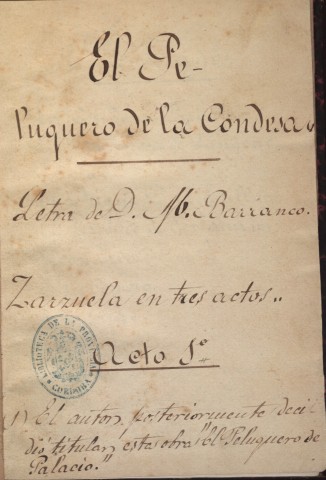 El Pe-
luquero de la Condesa„
Letra de D. M. Barranco.
Zarzuela en tres actos„
BIBLIOTECA DE LA PROVINCIA
CORDOBA
Acto 1º
1) El autor, posteriormente deci
dió titular esta obra "El Peluquero de
Palacio."